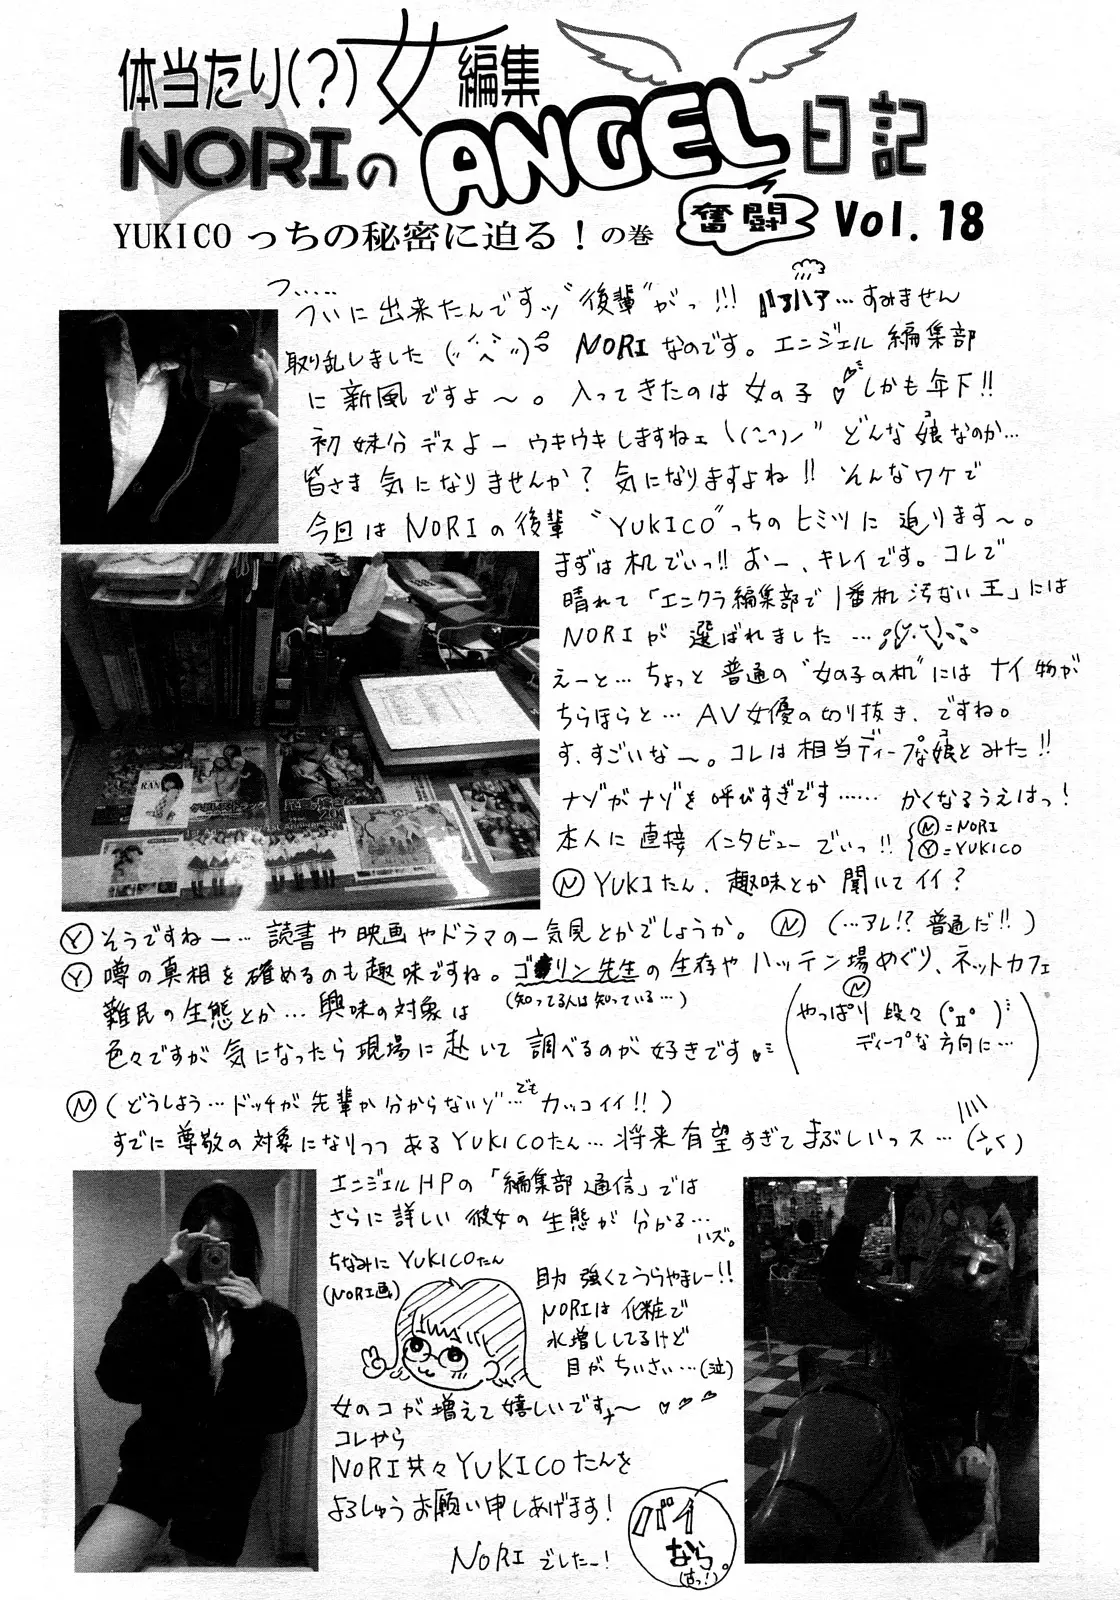 体当たり(?)女編集
NORIのANGEL日記
奮闘
Vol. 18
YUKICO っちの秘密に迫る！の巻
つ……
ついに出来たんですッ"後輩"がっ!!! ハァハァ…すみません
取り乱しました NORI なのです。エンジェル編集部
に新風ですよ〜。入ってきたのは女の子 しかも年下!!
初妹分デスよー ウキウキしますねェ どんな娘なのか…
皆さま気になりませんか？気になりますよね!! そんなワケで
今回はNORIの後輩"YUKICO"っちのヒミツに迫ります〜。
まずは机でぃっ!! おー、キレイです。コレで
晴れて「エンクラ編集部で1番机汚ない王」には
NORIが選ばれました…
えーと…ちょっと普通の"女の子の机"にはナイ物が
ちらほらと…AV女優の切り抜き、ですね。
す、すごいな〜。コレは相当ディープな娘とみた!!
ナゾがナゾを呼びすぎです…… かくなるうえはっ！
本人に直接インタビューでぃっ!!
Ⓝ=NORI
Ⓨ=YUKICO
Ⓝ YUKIたん、趣味とか聞いてイイ？
Ⓨ そうですねー…読書や映画やドラマの一気見とかでしょうか。 Ⓝ (…アレ!? 普通だ!!)
Ⓨ 噂の真相を確めるのも趣味ですね。ゴ リン先生の生存やハッテン場めぐり、ネットカフェ
(知ってる人は知っている…)
難民の生態とか…興味の対象は
色々ですが気になったら現場に赴いて調べるのが好きです
Ⓝ
やっぱり段々
ディープな方向に…
Ⓝ (どうしよう…ドッチが先輩か分からないゾ…でもカッコイイ!!)
すでに尊敬の対象になりつつあるYUKICOたん…将来有望すぎてまぶしいっス…
エンジェルHPの「編集部通信」では
さらに詳しい彼女の生態が分かる…
ハズ。
ちなみにYUKICOたん
(NORI画)
目力強くてうらやましー!!
NORIは化粧で
水増ししてるけど
目がちいさい…(泣)
女のコが増えて嬉しいですナ〜
コレから
NORI共々YUKICOたんを
よろしゅうお願い申しあげます！
NORIでしたー！
バイなら。
(古っ!)